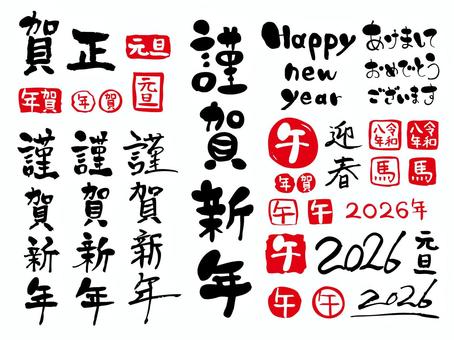 賀正
元旦
元旦
年賀
年賀
謹賀新年
謹賀新年
謹賀新年
謹賀新年
Happy
new
year
あけまして
おめでとう
ございます
午
迎春
令和八年
令和八年
年賀
馬
馬
午
午
2026年
午
2026
元旦
午
午
2026